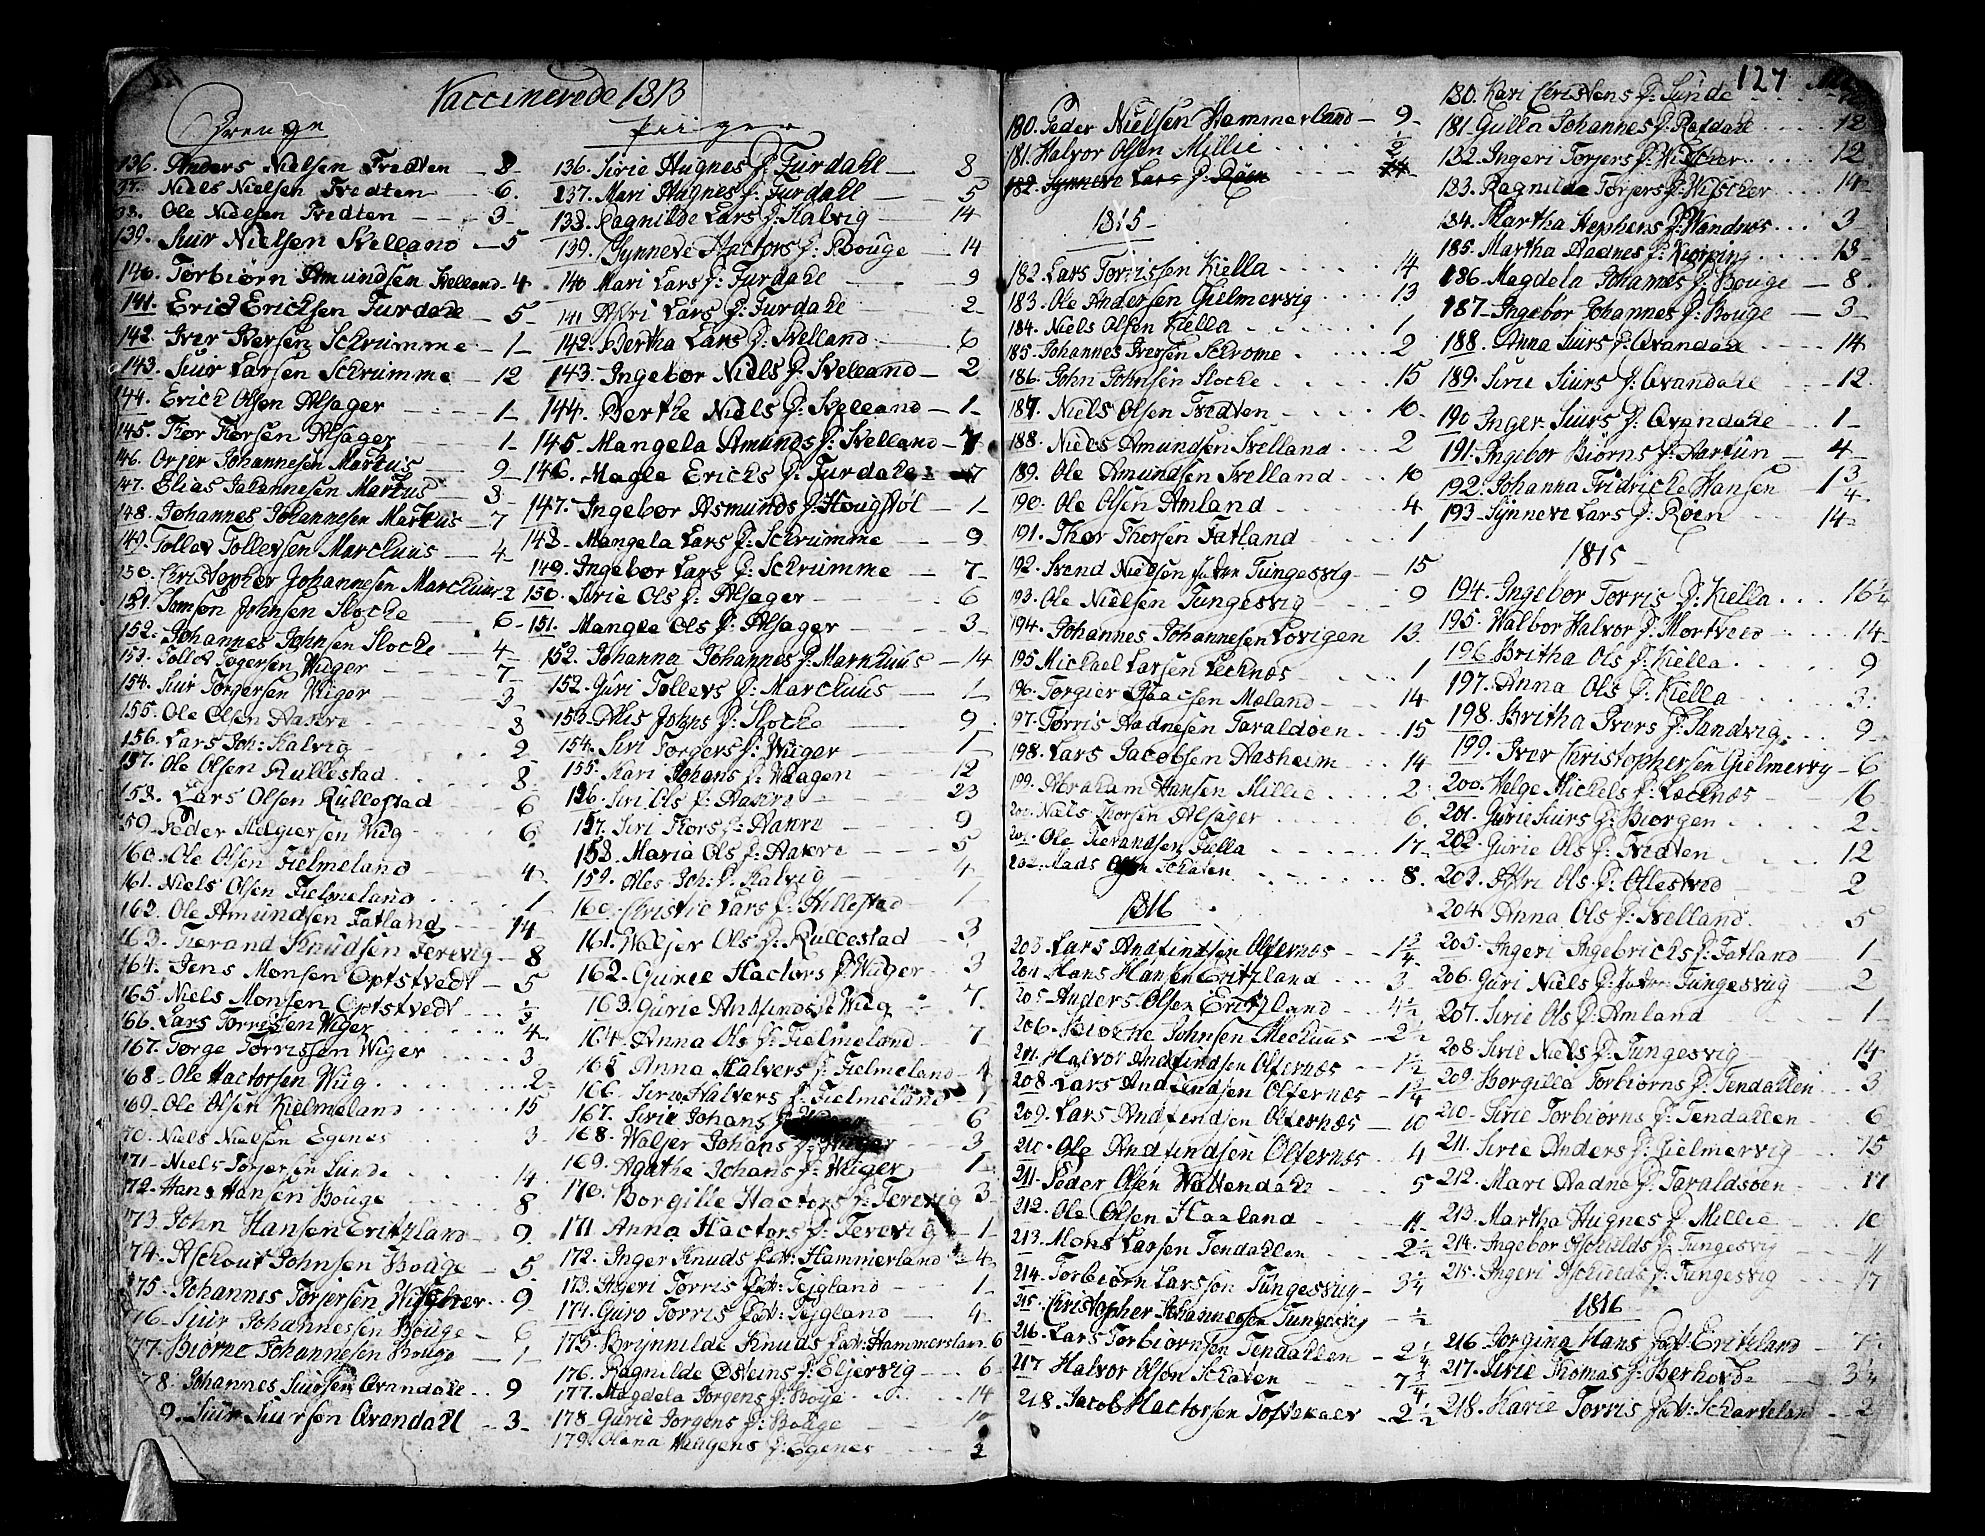 Vaccinerede 1813
Drenge
136. Anders Nielsen Fredten - 8-
37. Niels Nielsen Fredten - 6.
38. Ole Nielsen Fredten - 3-
139. Siur Nielsen Svelland - 5
140. Torbiørn Amundsen Svelland - 4
141. Erick Ericksen Furdahl - 5-
142. Iver Iversen Schrumme - 1-
143. Siur Larsen Schrumme - 12
144. Erich Olsen Alsager - 1-
145. Thor Thorsen Alsager - 1-
146. Johannesen Markus - 2
47. Elias Johannesen Markus - 3
148. Johannes Johannesen Markus - 7
149. Tollev Tollevsen Marckuus - 4
150. Christopher Johannesen Marckuus 2
151. Samson Johnsen Slocke - 6-
152. Johannes Johnsen Slocke - 4
153. Tollev Torgersen Wiger - 7
154. Siur Torgersen Wiger - 3
155. Ole Olsen Aakre 3
156. Lars Joh: Kalvig 2
157. Ole Olsen Rullestad 8
158. Lars Olsen Rullestad 6
159. Peder Wiig 6
160. Ole Olsen Fielmeland 4
161. Niels Olsen Fielmeland 1
162. Ole Amundsen Fatland 14
163. Tierand Knudsen Terevig - 8
164. Jens Monsen Optstvedt - 5
165. Niels Monsen Optstvedt
166. Lars Torrissen Wiger 4
167. Torge Torrissen Wiger 3
168. Ole Hactorsen Wiig 2
169. Ole Olsen Kielmeland 15
70. Niels Nielsen Egenes 3
171. Niels Torjersen Sunde 14
172. Hans Hansen Bouge 8
173. John Hansen Eritzland 9
174. Aschout Johnsen Bouge 5
175. Johannes Torjersen Wischer 9
176. Siur Johannessen Bouge - 6
77. Biørne Johannesen Bouge - 1
78. Johannes Siursen Qvandahl 9
9. Siur Siursen Qvandahl - 3-
Piiger
136. Sirie Hugnes D: Furdahl - 8
137. Mari Hugnes D: Furdahl - 5
138. Ragnilde Lars D: Kalvig - 14
139. Synneve Hactors D: Bouge - 14
140 Mari Lars D: Furdahl - 9
141 Alri Lars D: Furdahl - 2
142. Bertha Lars D: Svelland - 6
143. Ingebor Niels D: Svelland - 2
144. Berthe Niels D: Svelland - 1-
145. Mangela Amunds D: Svelland - 7
146. Magle Erichs D: Furdahl - 7
147. Ingebor Asmunds D: Hougstøl - 1-
148. Mangela Lars D: Schrumme - 9
149. Ingebor Lars D: Schrumme - 7-
150. Sirie Ols D: Alsager - 6
151. Mangle Ols D: Alsager - 3
152. Johanna Johannes D: Marckuus - 14
152. Guri Tollevs D: Marckuus - 1
153. Ales Johns D: Slocke 9
154. Siri Torgers D: Wiger - 1
155. Kari Johans D: Waagen 12
156. Siri Ols D: Aakre 23
157. Siri Thors D: Aakre 9
158. Maria Ols D: Aakre 5
159. Ales Joh: D: Kalvig 4
160. Christie Lars D: Hillestad 1
161. Waljer Ols D: Rullestad 3
162. Gurie Hactors D: Wiger 3
163. Gurie Andfinds D: Wiig 7
164. Anna Ols D: Fielmeland - 7
165 Anna Halvers D: Fielmeland
166. Siri Halvers D: Fielmeland 1
167. Sirie Johans D: 6
168. Waljer Johans D: Wiger 3
169. Agathe Johans D: Wiger 1-
170. Borgille Hactors D: Terevig 3-
171 Anna Hactors D: Terevig - 1
172. Inger Knuds Dat: Hammerland 4
173. Ingeri Torris Dat: Fejgland - 1
174. Guro Torris Dat: Fejgland - 4
175. Brynnilde Knuds Dat: Hammerslan 6
176. Ragnilde Østeins D: Eljervig - 6
177. Magdela Jorgens D: Boge 14
178. Gurie Jorgens D: Bouge 10
179. Olena Haugens D: Egenes 2
180. Peder Nielsen Hammerland - 9-
181. Halvor Olsen Millie 1/2
182. Synneve Lars D: Røen 14-
1815-
182. Lars Torrissen Kiella 14
183. Ole Andersen Gielmervig 13
184. Niels Olsen Kiella 1
185. Johannes Iversen Schrome 2
186. John Johnsen Slocke 15
187. Niels Olsen Fredten 10
188. Niels Amundsen Svelland 2
189. Ole Amundsen Svelland 10
190. Ole Olsen Amland 4
191. Thor Thorsen Fatland 1
192. Svend Nielsen Tungesvig - 15
193. Ole Nielsen Tungesvig 9
194. Johannes Johannesen Lovigen 13
195 Michael Larsen Lecknæs 1
196. Torgier Isaacsen Mæland 14
197. Torris Aadnesen Taraldsøen 15
198. Lars Jacobsen Aasheim 14
199. Abraham Hansen Millie 2
200. Niels Thorsen Alsager 6
201. Ole Tierandsen Fiella 17-
202. Mads Olsen Schaten 8
1816
203. Lars Andfindsen Olfernæs - 1 3/4
204 Hans Hansen Eritzland 3
205. Anders Olsen Eritzland - 4 1/2
206. Biørne Johnsen Mecluus - 2 1/2
2. Halvor Andfindsen Olfernæs - 1 1/2
208. Lars Andfindsen Olfernæs - 1 1/4
209. Lars Andfindsen Olfernæs - 10
210. Ole Andfindsen Olfernæs 4
211. Peder Olsen Wattendahl 5
212. Ole Olsen Haaland 11
213. Mons Larsen Tendallen 2 1/2
214. Torbiørn Larssen Tungesvig - 3 1/4
215. Christopher Johannessen Tungesvig - 1/2
216. Lars Torbiørnsen Tendallen - 2 1/4
217 Halvor Olsen Schaten 7 3/4
218. Jacob Hactorsen Toftekaer - 2 1/2
127
180. Kari Christens D: Sunde
181. Gulla Johannes D: Rafdahl 12
182. Ingeri Torjers D: Wischer 12
183. Ragnilde Torjers D: Wischer 14
184. Martha Stephens D: Wandnæs 3
185. Martha Aadnes D: Kiørping 13
186. Magdela Johannes D: Bouge - 8
187. Ingebor Johannes D: Bouge - 3
188. Anna Siurs D: Qvandahl - 14
189. Sirie Siurs D: Qvandahl - 12.
190 Inger Siurs D: Qvandahl - 1-
191. Ingebor Biørns D: Aartun - 4-
192. Johanna Fridriche Hansen - 1 3/4
193. Synneve Lars D: Røen 14-
1815
194. Ingebor Torris D: Kiella 16 1/4
195. Walbor Halvor D: Mortveed 14
196 Britha Ols D: Kiella 9
197. Anna Ols D: Kiella 3
198. Britha Ivers D: Sandvig 9-
199. Iver Christophersen Gielmervig - 6
200. Helge Mickels D: Lecknæs 16
201. Gurie Siurs D: Biorgen 2
202. Gurie Ols D: Fredten 12
203. Alri Ols D: Ølfestved 2
204. Anna Ols D: Svelland 5
205. Ingeri Ingebricks D: Fatland - 1-
206. Guri Niels D: Tungesvig - 2
207. Sirie Ols D: Amland - 1-
208. Sirie Niels D: Tungesvig 14
209. Borgilla Torbiørns D: Tendallen 3
210. Sirie Torbiørns D: Tendallen 6
211. Sirie Anders D: Gielmervig 15
212. Mari Aadne D: Taraldsøen 17
213. Martha Hugnes D: Millie 10
214. Ingebor Aschilds D: Tungesvig 11
215. Ingeri Aschilds D: Tungesvig 17
1816
216. Jorgina Hans Dat: Eritzland 7 1/2
217. Sirie Thomas D: Berhovde 3 1/4
218. Karie Torris Dat: Scharteland - 2